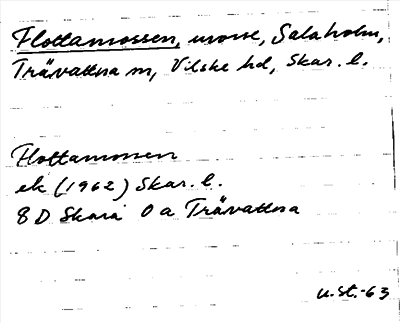 Flottamossen, mosse, Salaholm,
Trävattna sn, Vilske hd, Skar. l.
Flottamossen
ek (1962) Skar. l.
8 D Skara 0 a Trävattna
u.st.-63